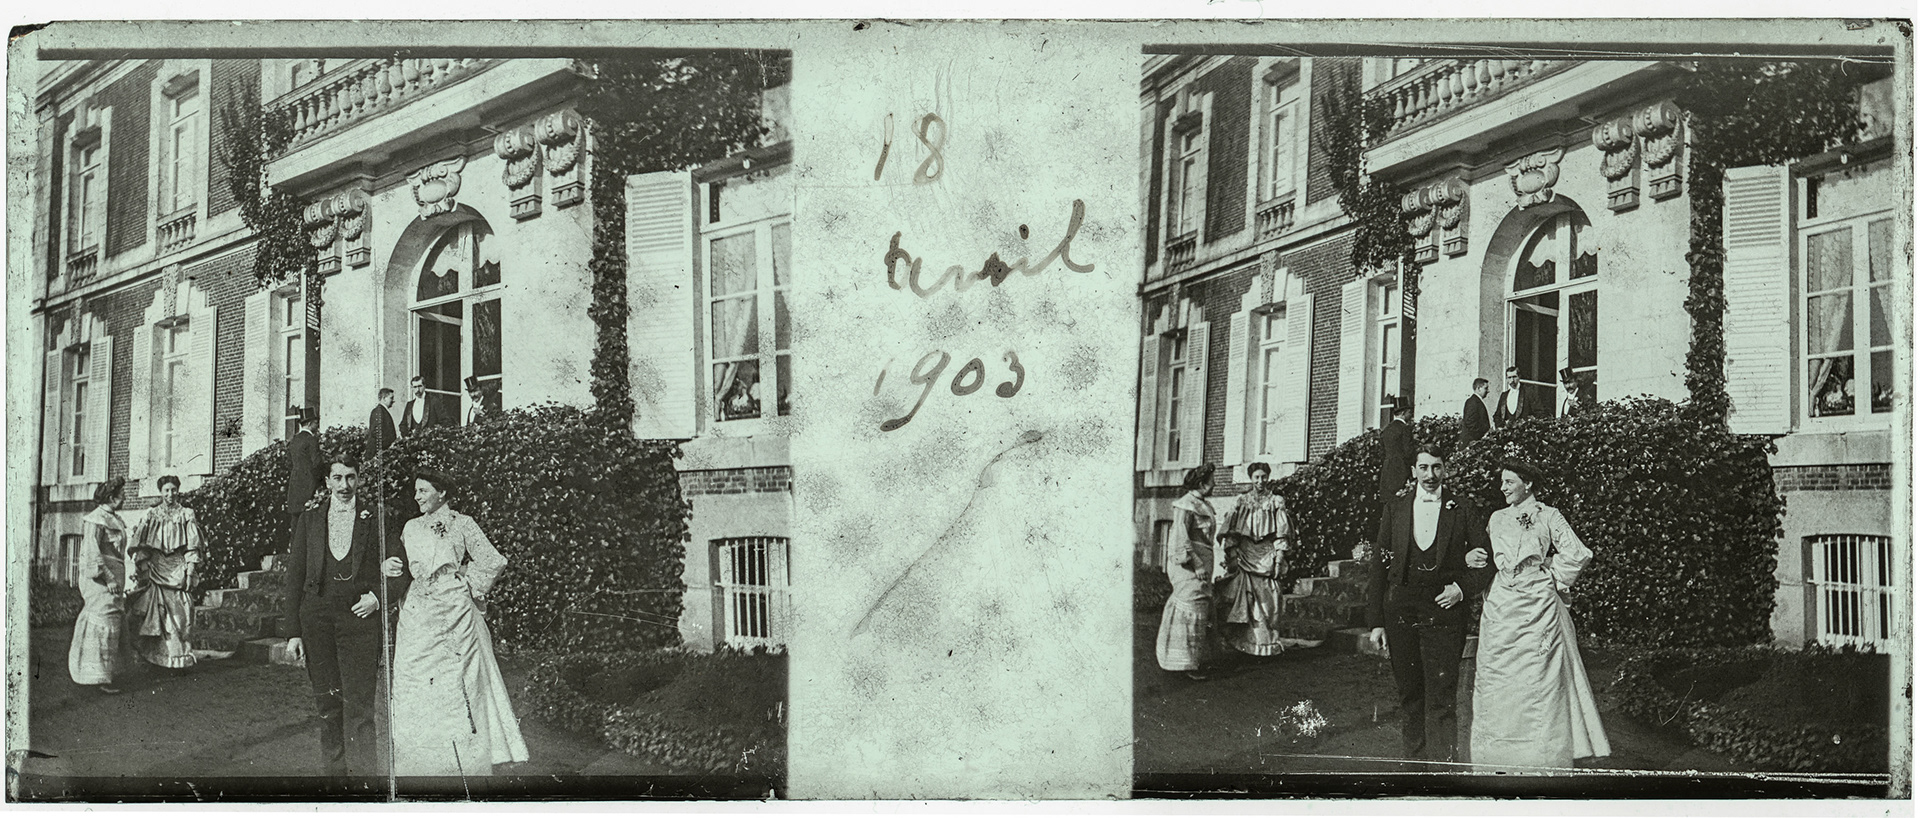 18
avril
1903